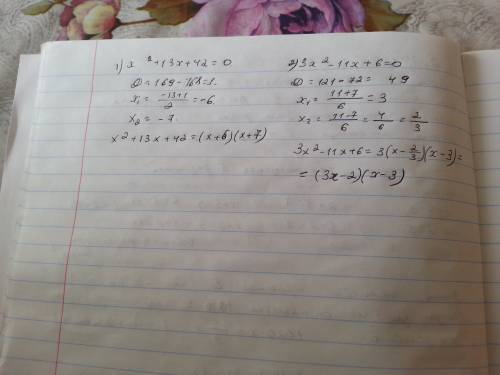 1) x²+13x+42=0
D=169-168=1.
x₁= (-13+1)/2 =-6
x₂= -7.
x²+13x+42=(x+6)(x+7)
2) 3x²-11x+6=0
D=121-72= 49
x₁= (11+7)/6 = 3
x₂= (11-7)/6 = 4/6 = 2/3
3x²-11x+6= 3(x-2/3)(x-3)=
= (3x-2)(x-3)